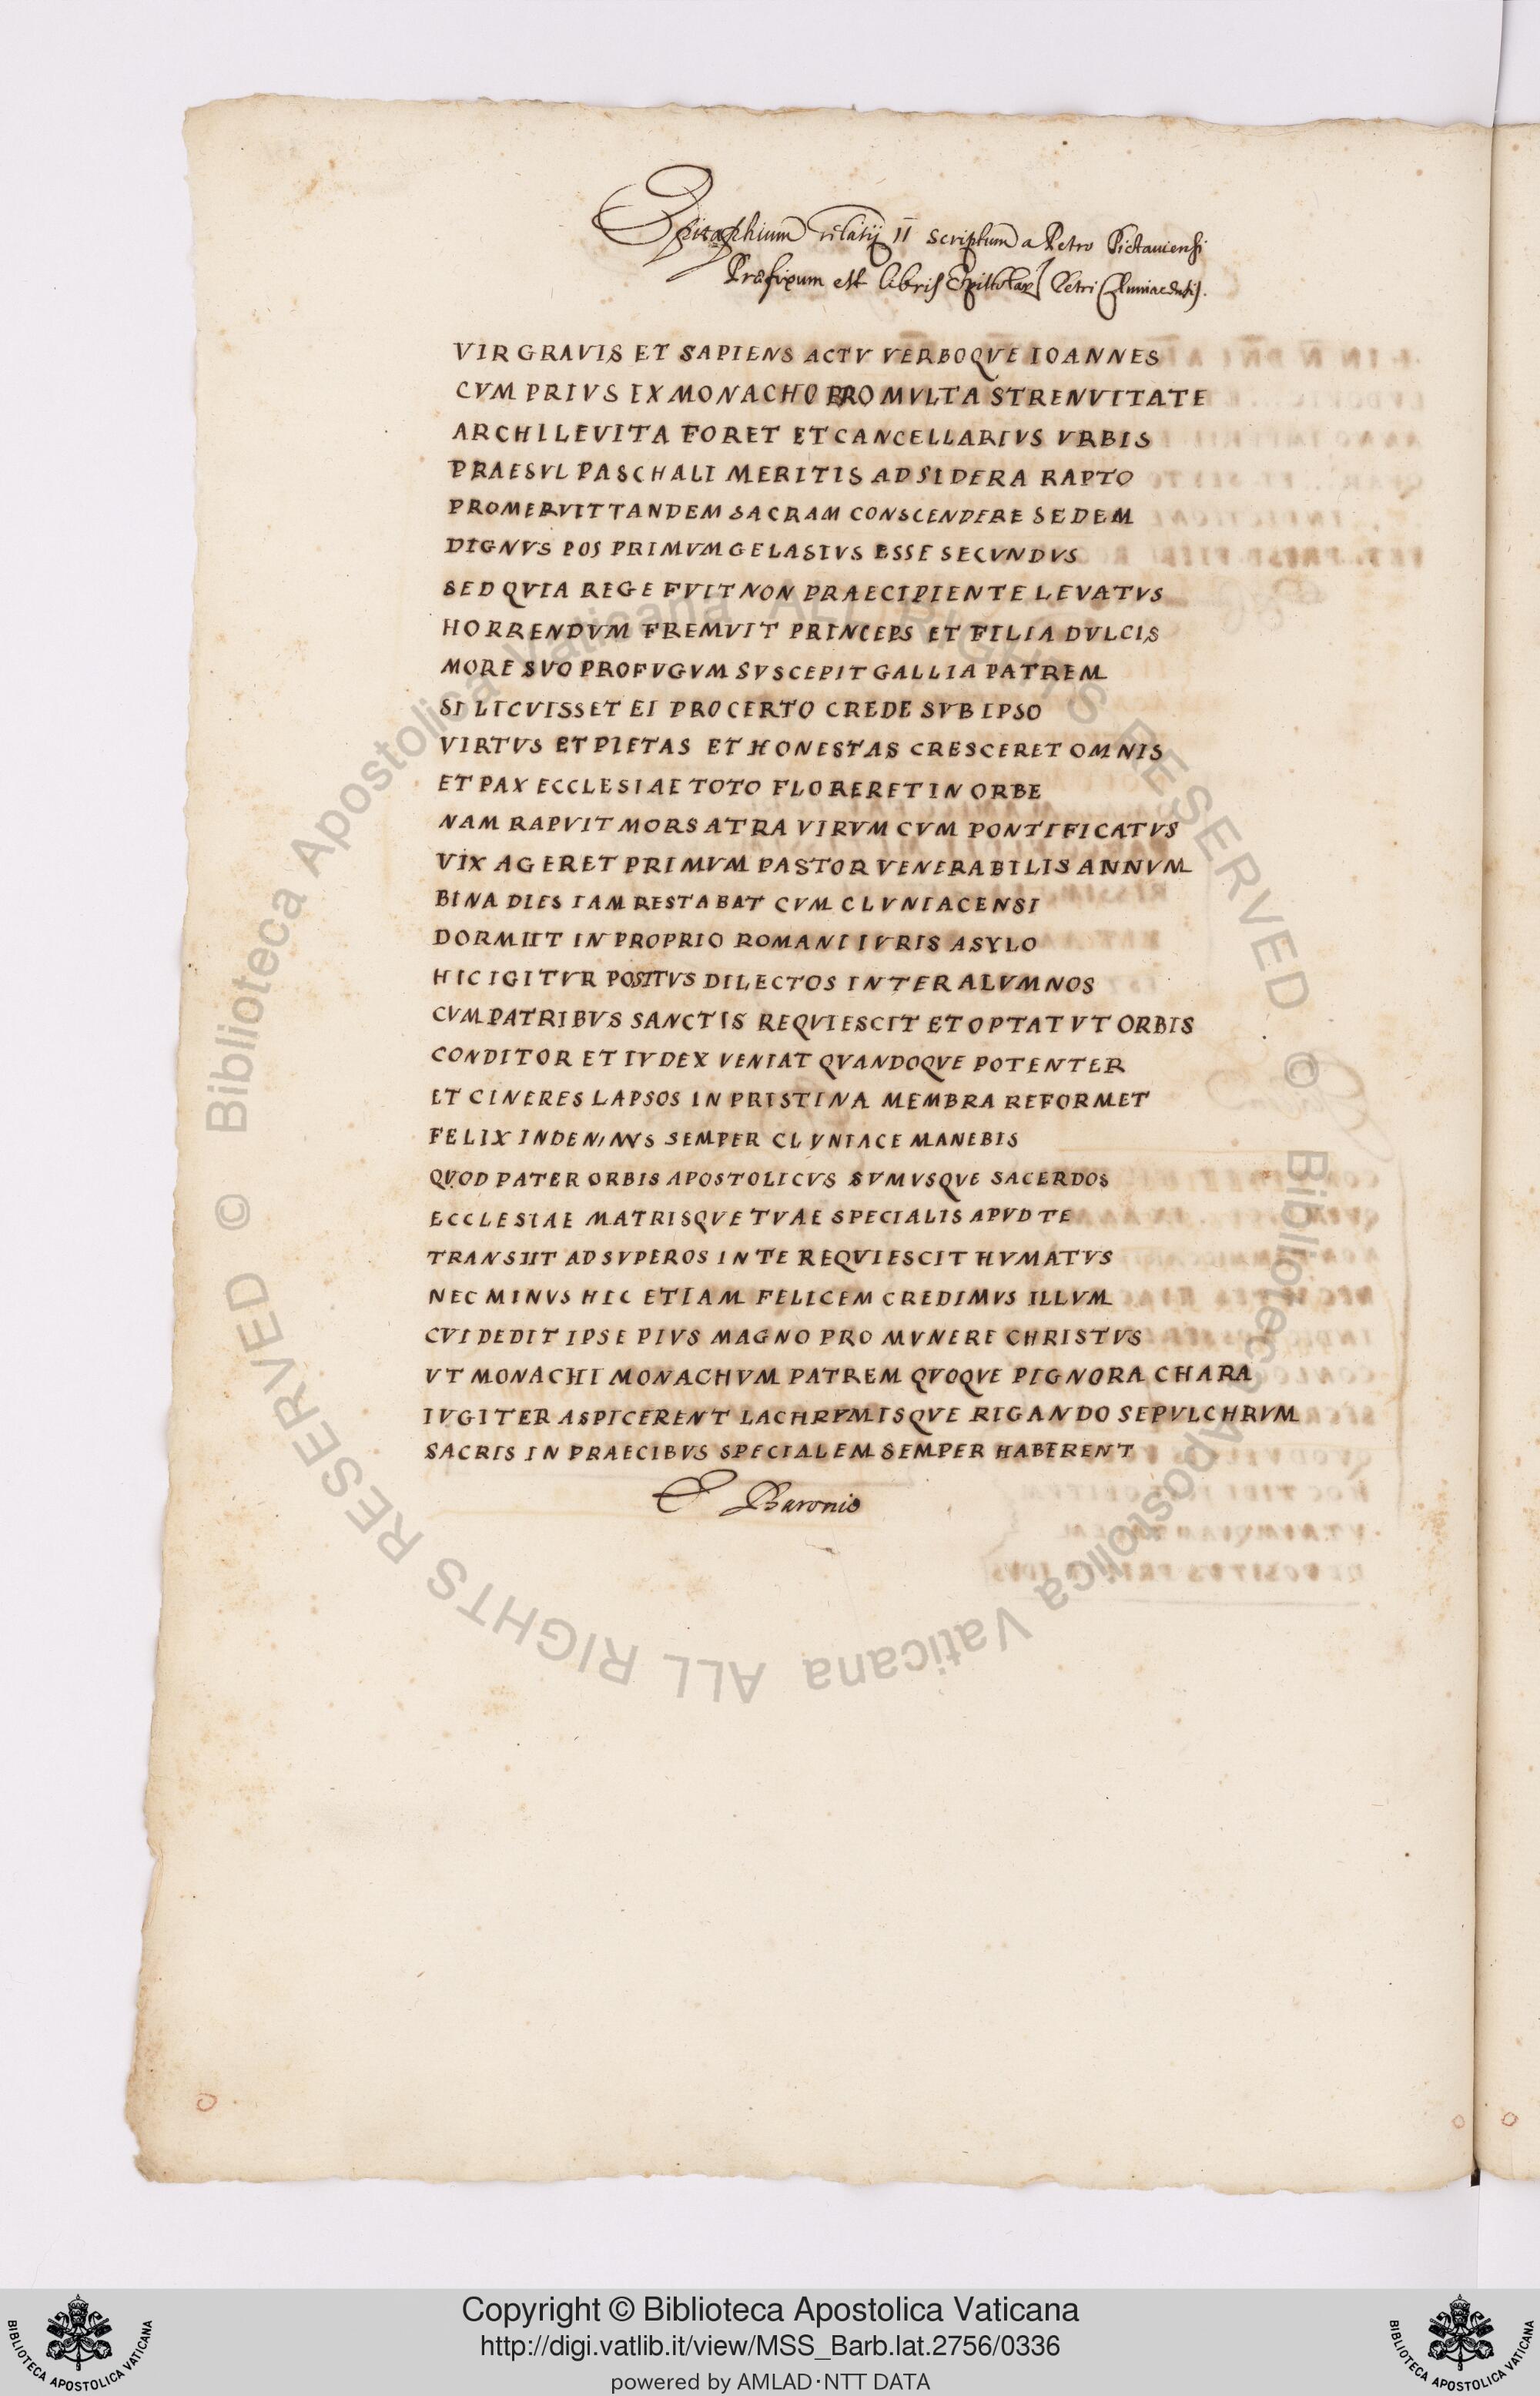 Epitaphium Gelasij II scriptum a Petro Pictauiensi
Præfixum est libris Epistolar Petri Cluniacensis.
VIR GRAVIS ET SAPIENS ACTV VERBOQVE IOANNES
CVM PRIVS EX MONACHO PRO MVLTA STRENVITATE
ARCHILEVITA FORET ET CANCELLARIVS VRBIS
PRAESVL PASCHALI MERITIS AD SIDERA RAPTO
PROMERVIT TANDEM SACRAM CONSCENDERE SEDEM
DIGNVS POS PRIMVM GELASIVS ESSE SECVNDVS
SED QVIA REGE FVIT NON PRAECIPIENTE LEVATVS
HORRENDVM FREMVIT PRINCEPS ET FILIA DVLCIS
MORE SVO PROFVGVM SVSCEPIT GALLIA PATREM
SI LICVISSET EI PRO CERTO CREDE SVB IPSO
VIRTVS ET PIETAS ET HONESTAS CRESCERET OMNIS
ET PAX ECCLESIAE TOTO FLORERET IN ORBE
NAM RAPVIT MORS ATRA VIRVM CVM PONTIFICATVS
VIX AGERET PRIMVM PASTOR VENERABILIS ANNVM
BINA DIES IAM RESTABAT CVM CLVNIACENSI
DORMIIT IN PROPRIO ROMANI IVRIS ASYLO
HIC IGITVR POSITVS DILECTOS INTER ALVMNOS
CVM PATRIBVS SANCTIS REQVIESCIT ET OPTAT VT ORBIS
CONDITOR ET IVDEX VENIAT QVANDOQVE POTENTER
ET CINERES LAPSOS IN PRISTINA MEMBRA REFORMET
FELIX INDE NIMIS SEMPER CLVNIACE MANEBIS
QVOD PATER ORBIS APOSTOLICVS SVMVSQVE SACERDOS
ECCLESIAE MATRISQVE TVAE SPECIALIS APVD TE
TRANSIIT AD SVPEROS IN TE REQVIESCIT HVMATVS
NEC MINVS HIC ETIAM FELICEM CREDIMVS ILLVM
CVI DEDIT IPSE PIVS MAGNO PRO MVNERE CHRISTVS
VT MONACHI MONACHVM PATREM QVOQVE PIGNORA CHARA
IVGITER ASPICERENT LACHRYMISQVE RIGANDO SEPVLCHRVM
SACRIS IN PRAECIBVS SPECIALEM SEMPER HABERENT
E Baronio
© Biblioteca Apostolica Vaticana ALL RIGHTS RESERVED © Biblioteca Apostolica Vaticana ALL RIGHTS RESERVED
Copyright © Biblioteca Apostolica Vaticana
http://digi.vatlib.it/view/MSS_Barb.lat.2756/0336
powered by AMLAD·NTT DATA
BIBLIOTECA APOSTOLICA VATICANA
BIBLIOTECA APOSTOLICA VATICANA